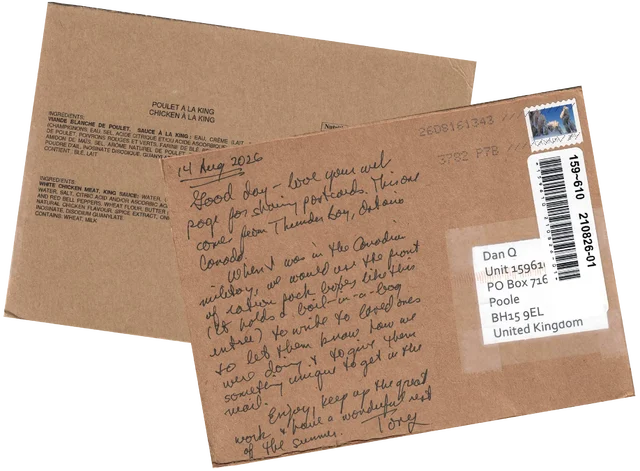 POULET À LA KING
CHICKEN À LA KING
INGRÉDIENTS:
VIANDE BLANCHE DE POULET, SAUCE À LA KING: EAU, CRÈME
(CHAMPIGNONS, EAU, SEL, ACIDE CITRIQUE ET/OU ACIDE ASCORBIQUE
DE POULET, POIVRONS ROUGES ET VERTS, FARINE DE BLÉ
AMIDON DE MAÏS, SEL, ARÔME NATUREL DE POULET
POUDRE D'AIL, INOSINATE DISODIQUE, GUANYLATE
CONTIENT: BLÉ, LAIT
INGREDIENTS:
WHITE CHICKEN MEAT, KING SAUCE: WATER,
WATER, SALT, CITRIC ACID AND/OR ASCORBIC
AND RED BELL PEPPERS, WHEAT FLOUR, BUTTER
NATURAL CHICKEN FLAVOUR, SPICE EXTRACT,
INOSINATE, DISODIUM GUANYLATE
CONTAINS: WHEAT, MILK
14 Aug 2026
Good day - love your web
page for sharing postcards. This one
comes from Thunder Bay, Ontario
Canada.
When I was in the Canadian
military, we would use the front
of ration pack boxes like this
(it holds a boil-in-a-bag
entree) to write to loved ones
to let them know how we
were doing & to give them
something unique to get in the
mail.
Enjoy, keep up the great
work & have a wonderful rest
of the summer. Tony
2608161343
3782 P7B
159-610 210826-01
Dan Q
Unit 159610
PO Box 716
Poole
BH15 9EL
United Kingdom